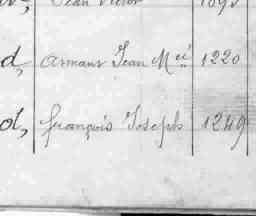 Jean Victor 1095
d, Armant Jean Mcel 1220
ol, François Joseph 1249